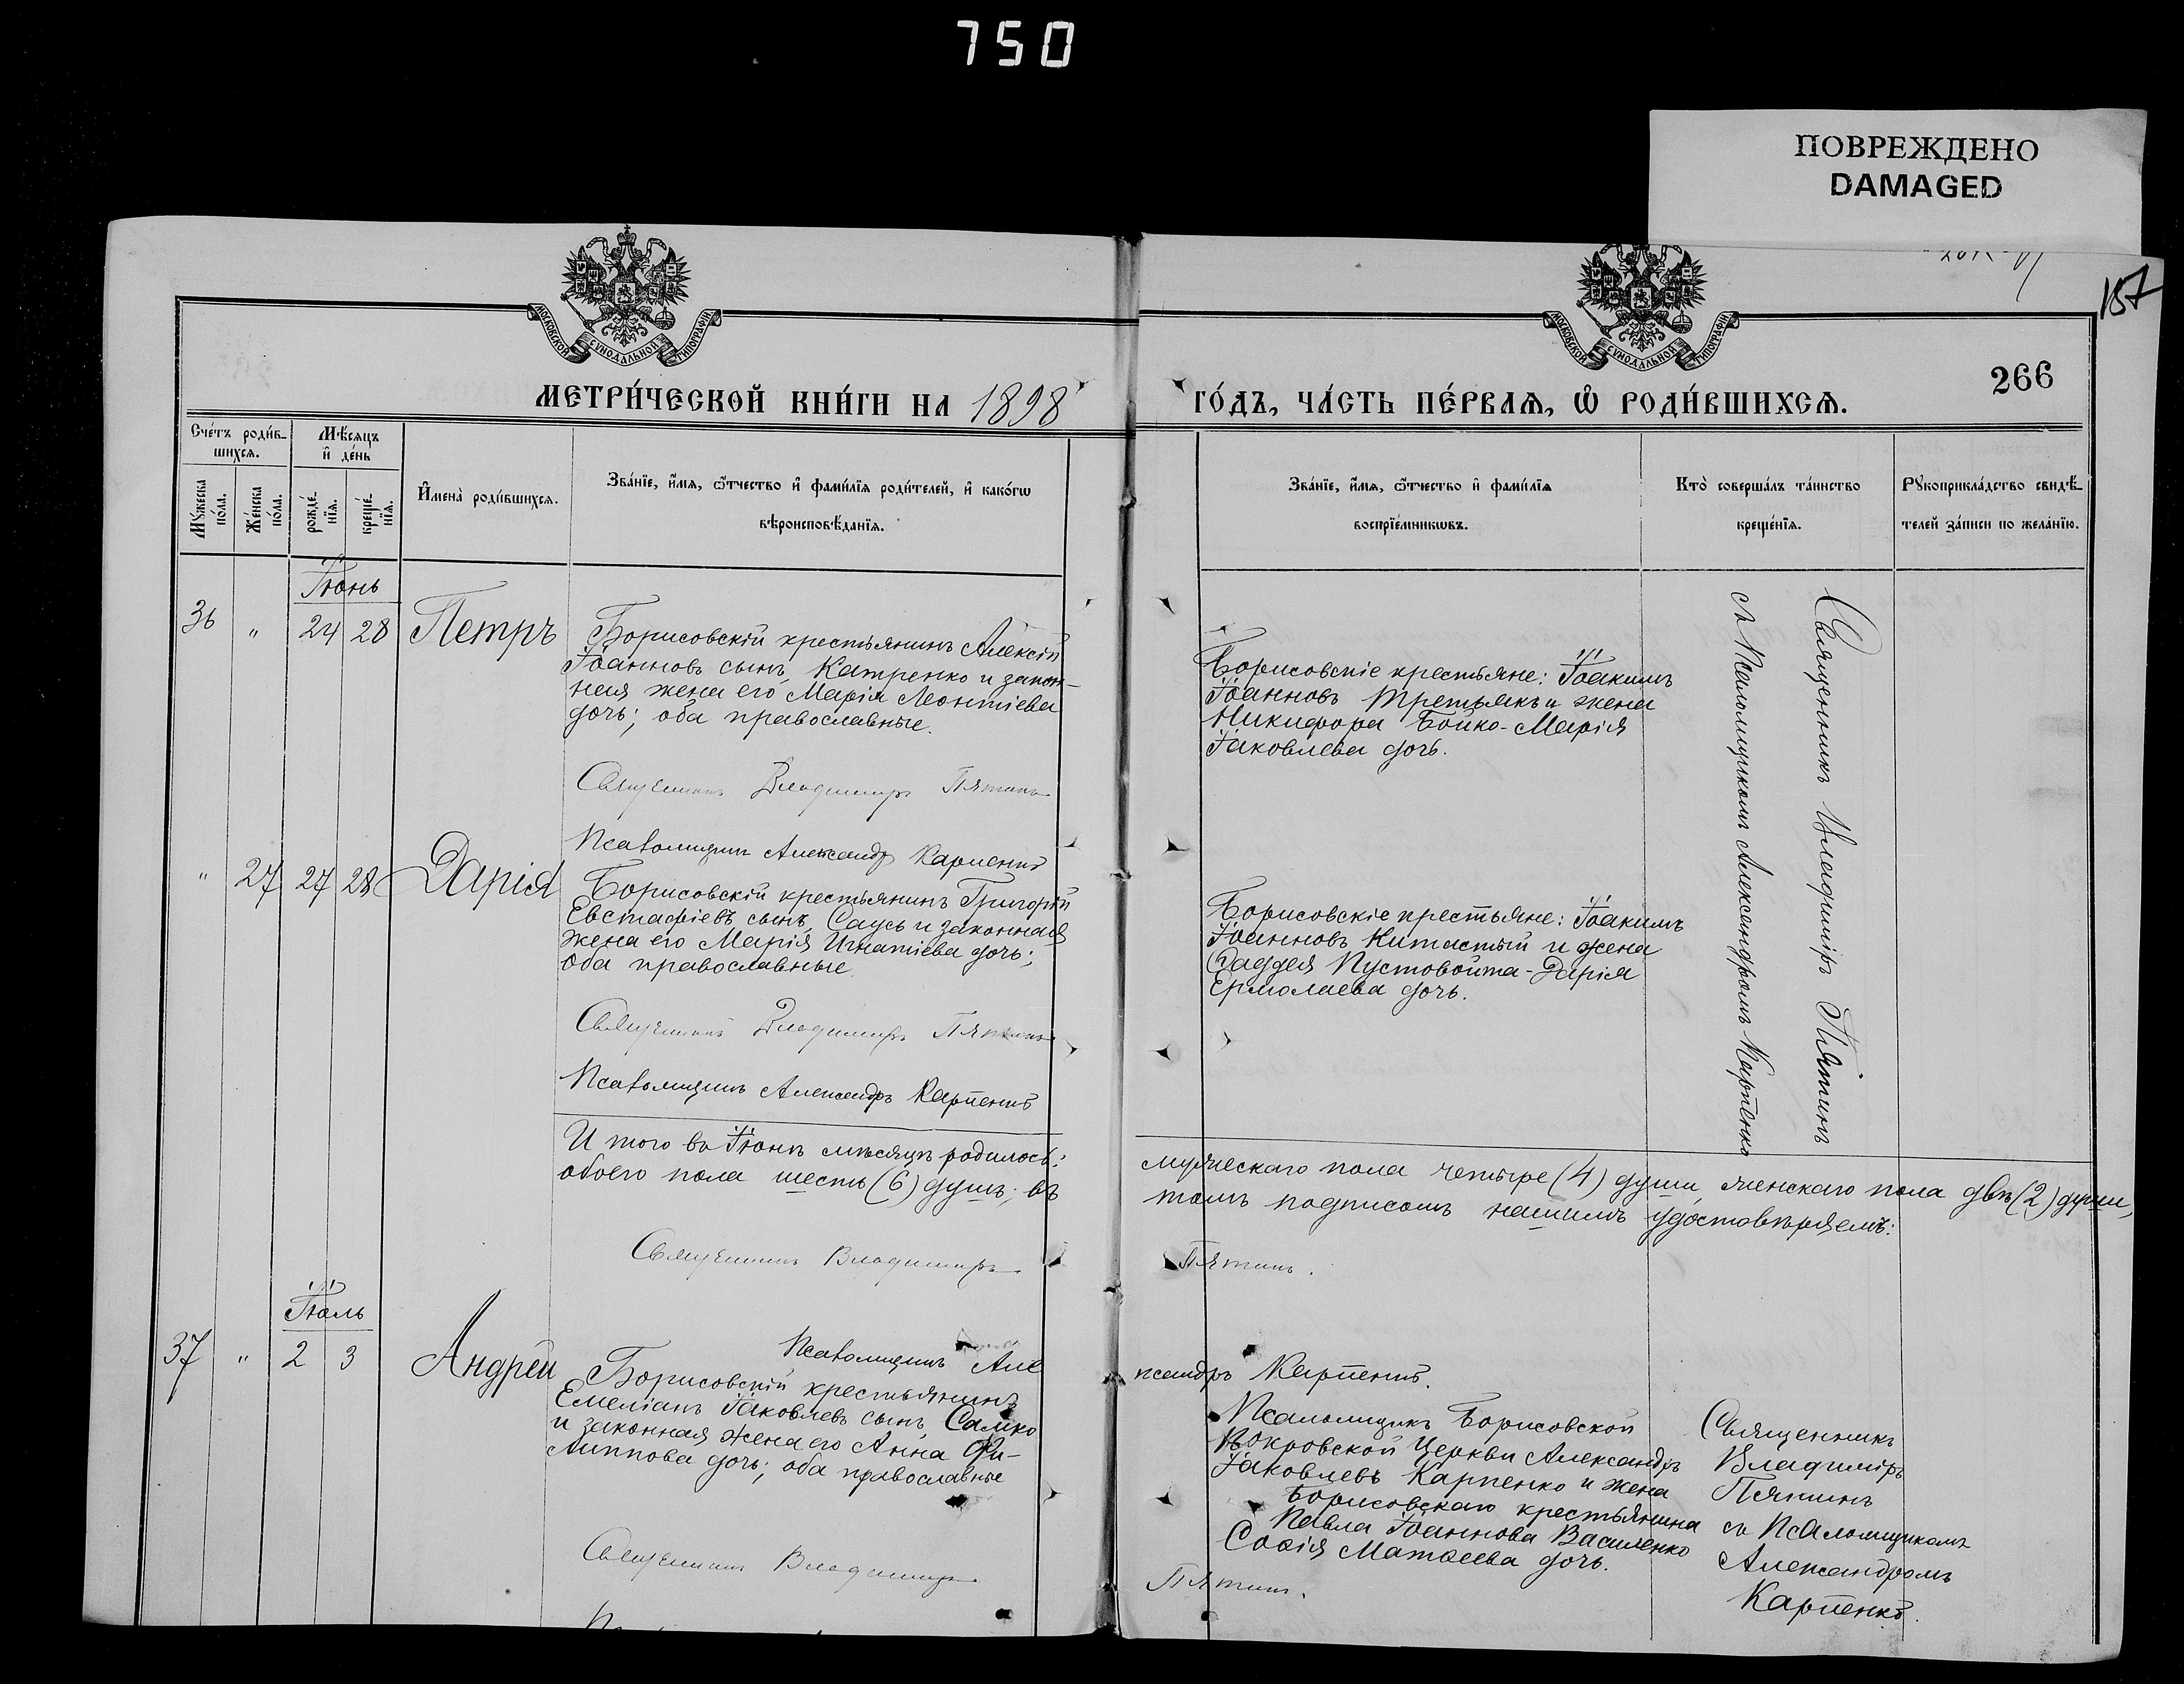 750
ПОВРЕЖДЕНО
DAMAGED
157
МОСКОВСКОЙ СѴНОДАЛЬНОЙ ТИПОГРАФІИ
МОСКОВСКОЙ СѴНОДАЛЬНОЙ ТИПОГРАФІИ
266
МЕТРИ́ЧЕСКОЙ КНИ́ГИ НА 1898
ГО́ДЪ, ЧА́СТЬ ПЕ́РВАѦ, Ѽ РОДИ́ВШИХСѦ.
Сче́тъ роди́в-
шихсѧ.
Мѣ́сѧцъ
и҆ де́нь
Мꙋ́жеска
по́ла.
Же́нска
по́ла.
рожде́-
нїѧ.
креще́-
нїѧ.
И҆мена̀ роди́вшихсѧ.
Зва́нїе, и҆́мѧ, ѻ҆́тчество и҆ фами́лїѧ роди́телей, и҆ како́гѡ
вѣроисповѣ́данїѧ.
Зва́нїе, и҆́мѧ, ѻ҆́тчество и҆ фами́лїѧ
воспрїе́мникѡвъ.
Кто̀ соверша́лъ та́инство
креще́нїѧ.
Рꙋкоприкла́дство свидѣ́-
телей за́писи по жела́нїю.
Іюнь
36 " 24 28 Петръ
Борисовскій крестьянинъ Алексій
Іоанновъ сынъ, Катренко и закон-
ная жена его Марія Леонтіева
дочь; оба православные.
Священникъ Владимиръ Пятинъ
Псаломщикъ Александръ Карпенко
Борисовскіе крестьяне: Іоакимъ
Іоанновъ Третьякъ и жена
Никифора Бойко-Марія
Іаковлева дочь.
Священникъ Владиміръ Пятинъ
съ Псаломщикомъ Александромъ Карпенко
" 27 27 28 Дарія
Борисовскій крестьянинъ Григорій
Евстафіевъ сынъ, Саусь и законная
жена его Марія Игнатіева дочь;
оба православные.
Священникъ Владимиръ Пятинъ
Псаломщикъ Александръ Карпенко
Борисовскіе крестьяне: Іоакимъ
Іоанновъ Китастый и жена
Фаддея Пустовойта-Дарія
Ермолаева дочь.
И того въ Іюнѣ мѣсяцѣ родилось:
обоего пола шесть (6) душъ; въ
мужескаго пола четыре (4) души, женскаго пола двѣ (2) души,
томъ подписомъ нашимъ удостовѣряемъ:
Священникъ Владимиръ
Пятинъ.
Псаломщикъ Але
ксандръ Карпенко.
Іюль
37 " 2 3 Андрей
Борисовскій крестьянинъ
Емеліанъ Іаковлевъ сынъ, Самко
и законная жена его Анна Фи-
липпова дочь; оба православные
Псаломщикъ Борисовской
Покровской Церкви Александръ
Іаковлевъ Карпенко и жена
Борисовскаго крестьянина
Павла Іоаннова Василенко
Софія Матѳеева дочь.
Священникъ
Владиміръ
Пятинъ
съ Псаломщикомъ
Александромъ
Карпенко.
Священникъ Владимиръ
Пятинъ.